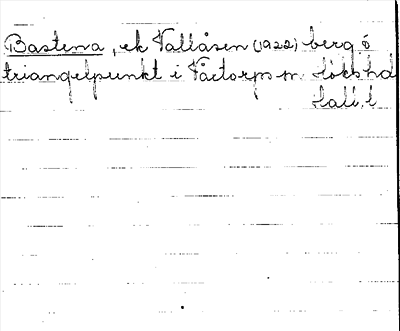 Bastena, ek Vallåsen (1922) berg ö
triangelpunkt i Våxtorps sn. Hökshd
Hall. l